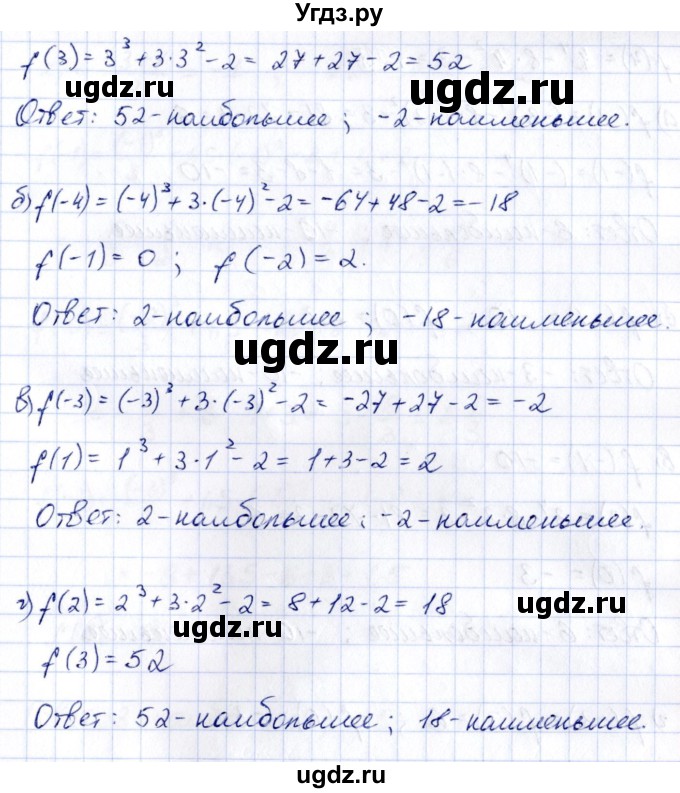 Угдз.ру
f(3) = 3³ + 3·3² - 2 = 27 + 27 - 2 = 52
ugdz.ru ugdz.ru
Ответ: 52 - наибольшее ; -2 - наименьшее.
б) f(-4) = (-4)³ + 3·(-4)² - 2 = -64 + 48 - 2 = -18
f(-1) = 0 ; f(-2) = 2.
Ответ: 2 - наибольшее ; -18 - наименьшее.
ugdz.ru
в) f(-3) = (-3)³ + 3·(-3)² - 2 = -27 + 27 - 2 = -2
f(1) = 1³ + 3·1² - 2 = 1 + 3 - 2 = 2
ugdz.ru
Ответ: 2 - наибольшее ; -2 - наименьшее.
г) f(2) = 2³ + 3·2² - 2 = 8 + 12 - 2 = 18
ugdz.ru
ugdz.ru
f(3) = 52
Ответ: 52 - наибольшее ; 18 - наименьшее.
ugdz.ru